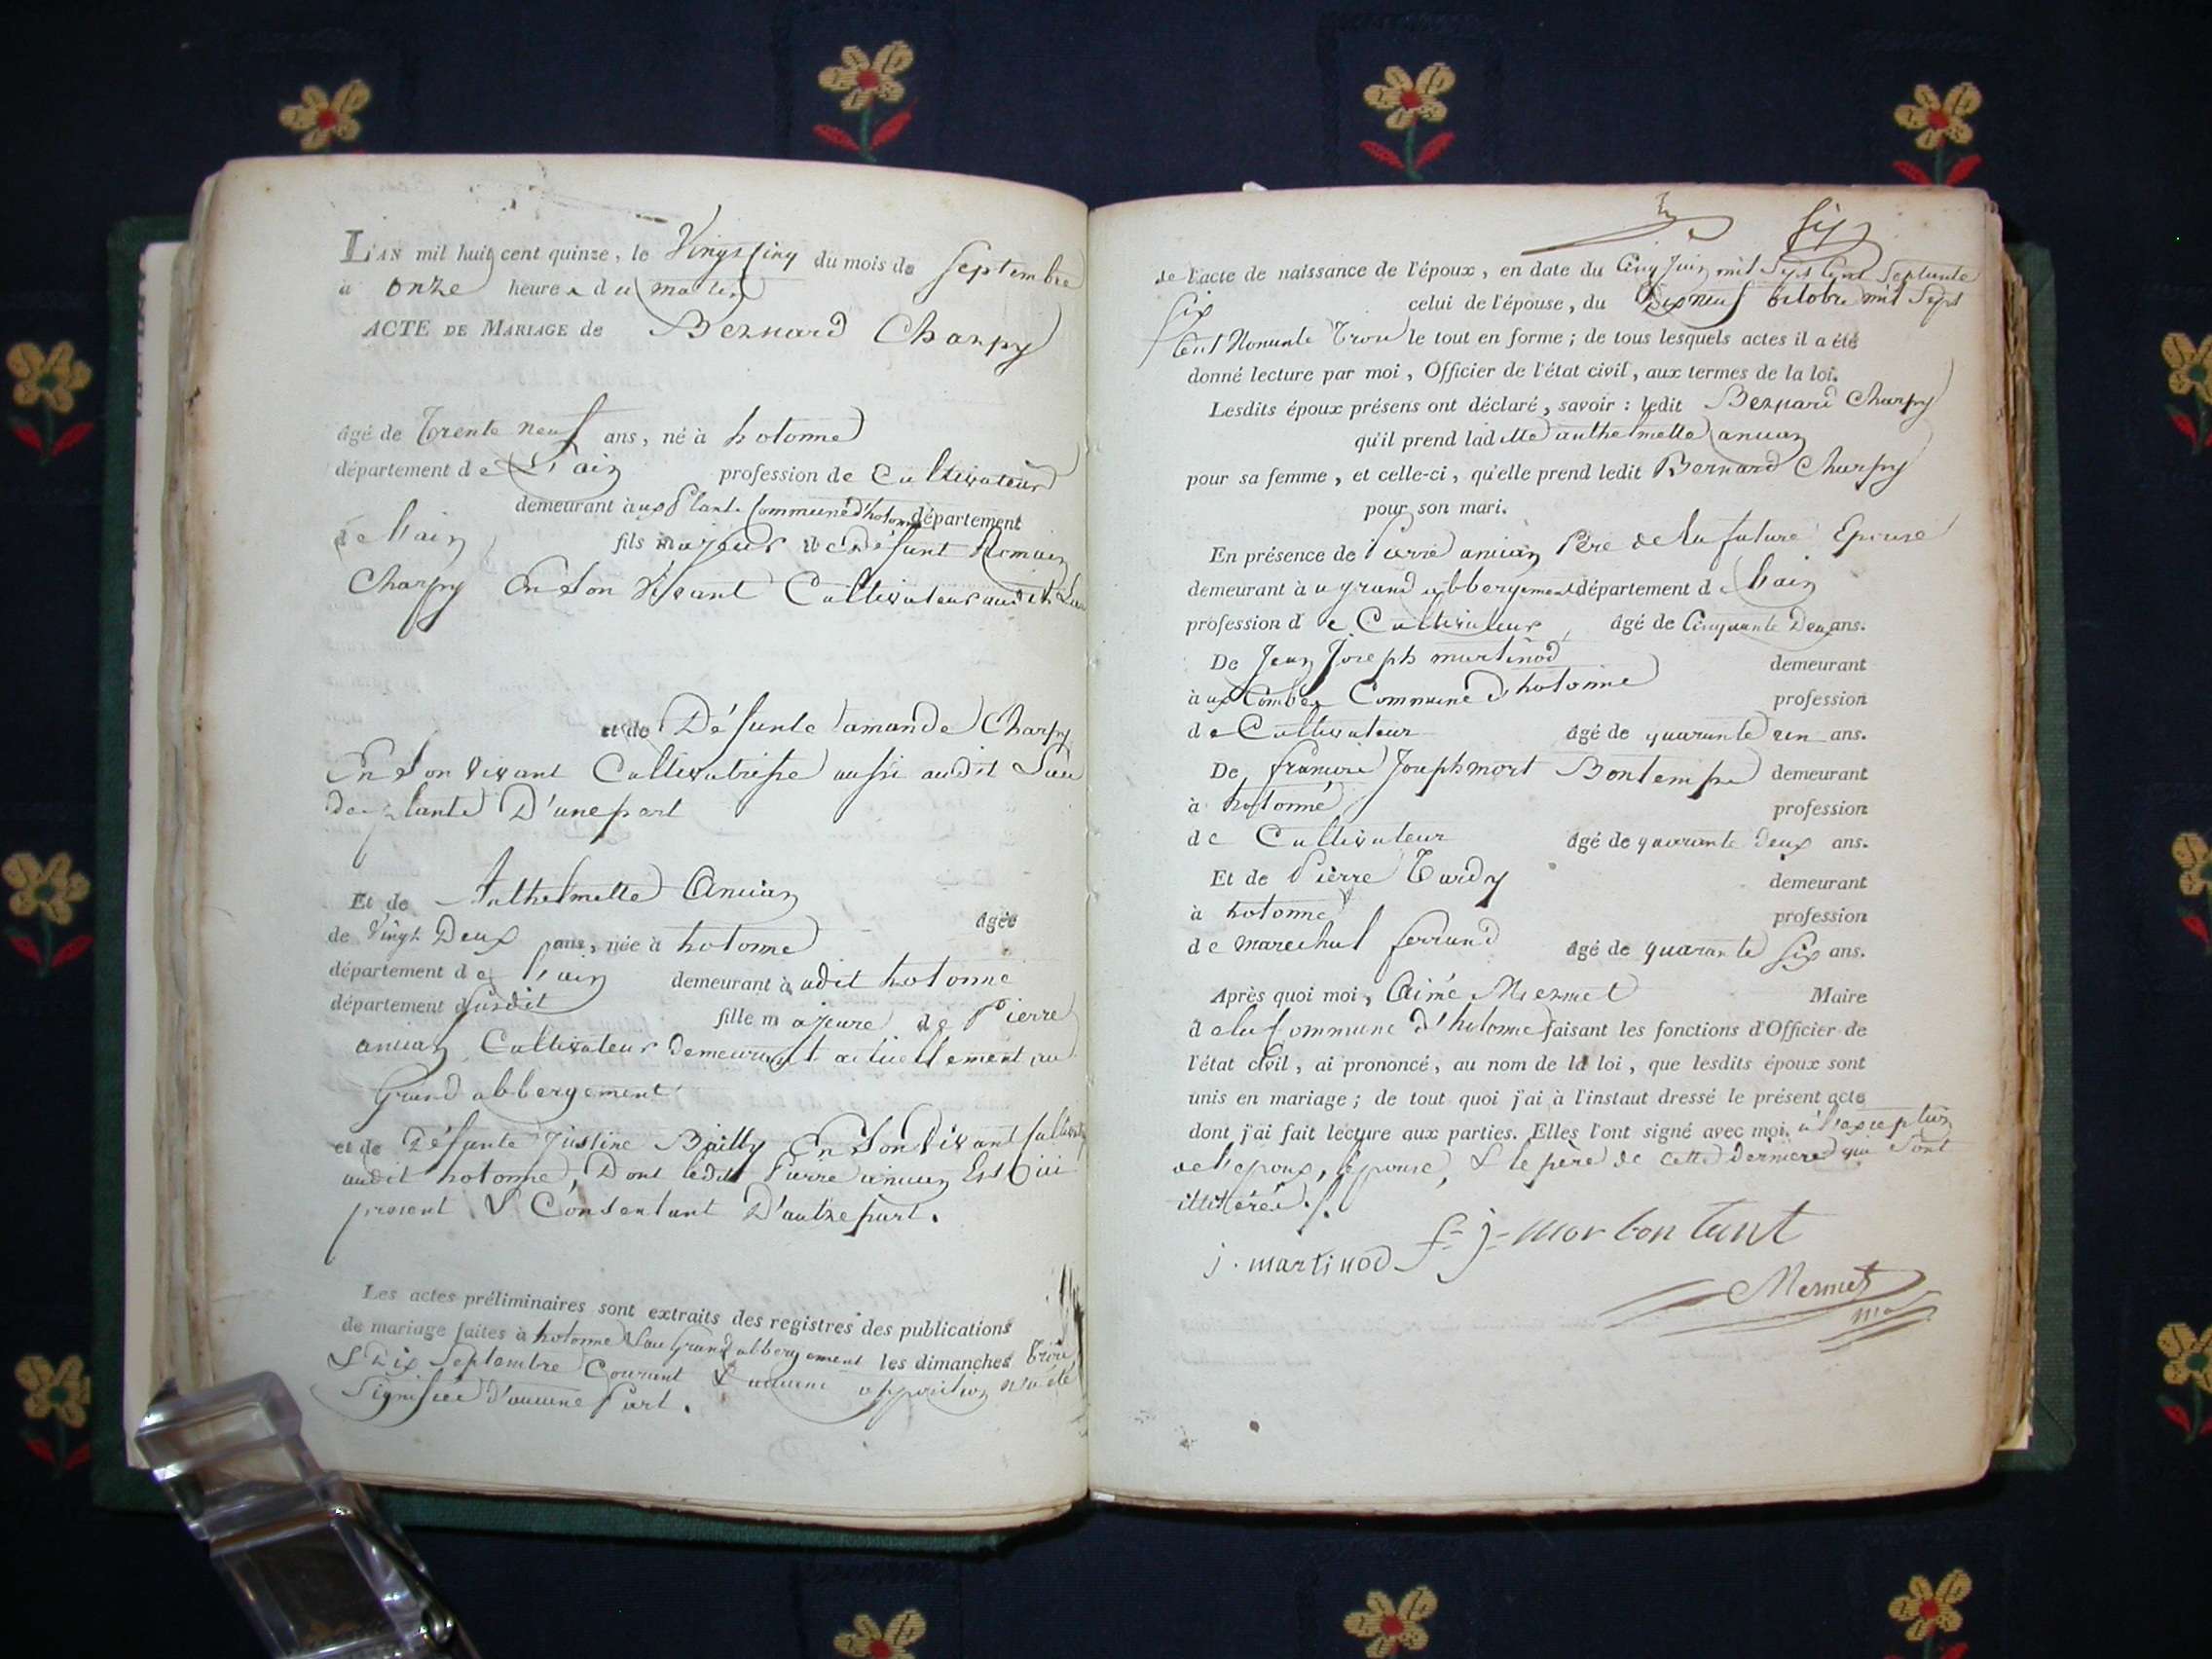 L'AN mil huit cent quinze, le Vingt Cinq du mois de Septembre
à onze heures du matin
ACTE DE MARIAGE de Bernard Charpy
âgé de Trente neuf ans, né à hotonne
département de L'ain profession de Cultivateur
demeurant aux Plants Commune d'hotonne département
de l'ain fils majeur de Défunt Romain
Charpy En Son Vivant Cultivateur audit Lieu
et de Défunte amande Charpy
En Son Vivant Cultivatrisse aussi audit Lieu
des plants D'une part
Et de Anthelmette Ancian
âgée
de Vingt Deux ans, née à hotonne
département de l'ain demeurant à udit hotonne
département susdit
fille majeure de Pierre
ancian Cultivateur Demeurant actuellement au
Grand abbergement
et de Défunte Justine Bailly En Son Vivant
audit hotonne, Dont ledit Pierre ancian Est ici
present & Consentant D'autre part.
Les actes préliminaires sont extraits des registres des publications
de mariage faites à hotonne & au Grand abbergement les dimanches Trois
& Dix Septembre Courant & aucune opposition n'a été
Signifiée d'aucune Part.
Six
de l'acte de naissance de l'époux, en date du Cinq Juin mil Sept Cent Septante
Six celui de l'épouse, du Dix neuf octobre mil Sept
Cent Nonante Trois le tout en forme; de tous lesquels actes il a été
donné lecture par moi, Officier de l'état civil, aux termes de la loi.
Lesdits époux présens ont déclaré, savoir: ledit Bernard Charpy
qu'il prend laditte anthelmette ancian
pour sa femme, et celle-ci, qu'elle prend ledit Bernard Charpy
pour son mari.
En présence de Pierre ancian Père de la future Epouse
demeurant à u grand abbergement département de l'ain
profession de Cultivateur âgé de Cinquante Deux ans.
De Jean Joseph martinod demeurant
à ux Combes Commune d'hotonne profession
de Cultivateur âgé de quarante un ans.
De francois Joseph mort Bontemps demeurant
à hotonne profession
de Cultivateur âgé de quarante deux ans.
Et de Pierre Tardy demeurant
à hotonne profession
de marechal ferrand âgé de quarante six ans.
Après quoi moi, Aimé Mermet Maire
de la Commune d'hotonne faisant les fonctions d'Officier de
l'état civil, ai prononcé, au nom de la loi, que lesdits époux sont
unis en mariage; de tout quoi j'ai à l'instant dressé le présent acte
dont j'ai fait lecture aux parties. Elles l'ont signé avec moi, à l'exception
de l'epoux, l'épouse, & le père de cette derniere qui Sont
illitérés./.
f=j=mor bon Tant
j. martinod
Mermet